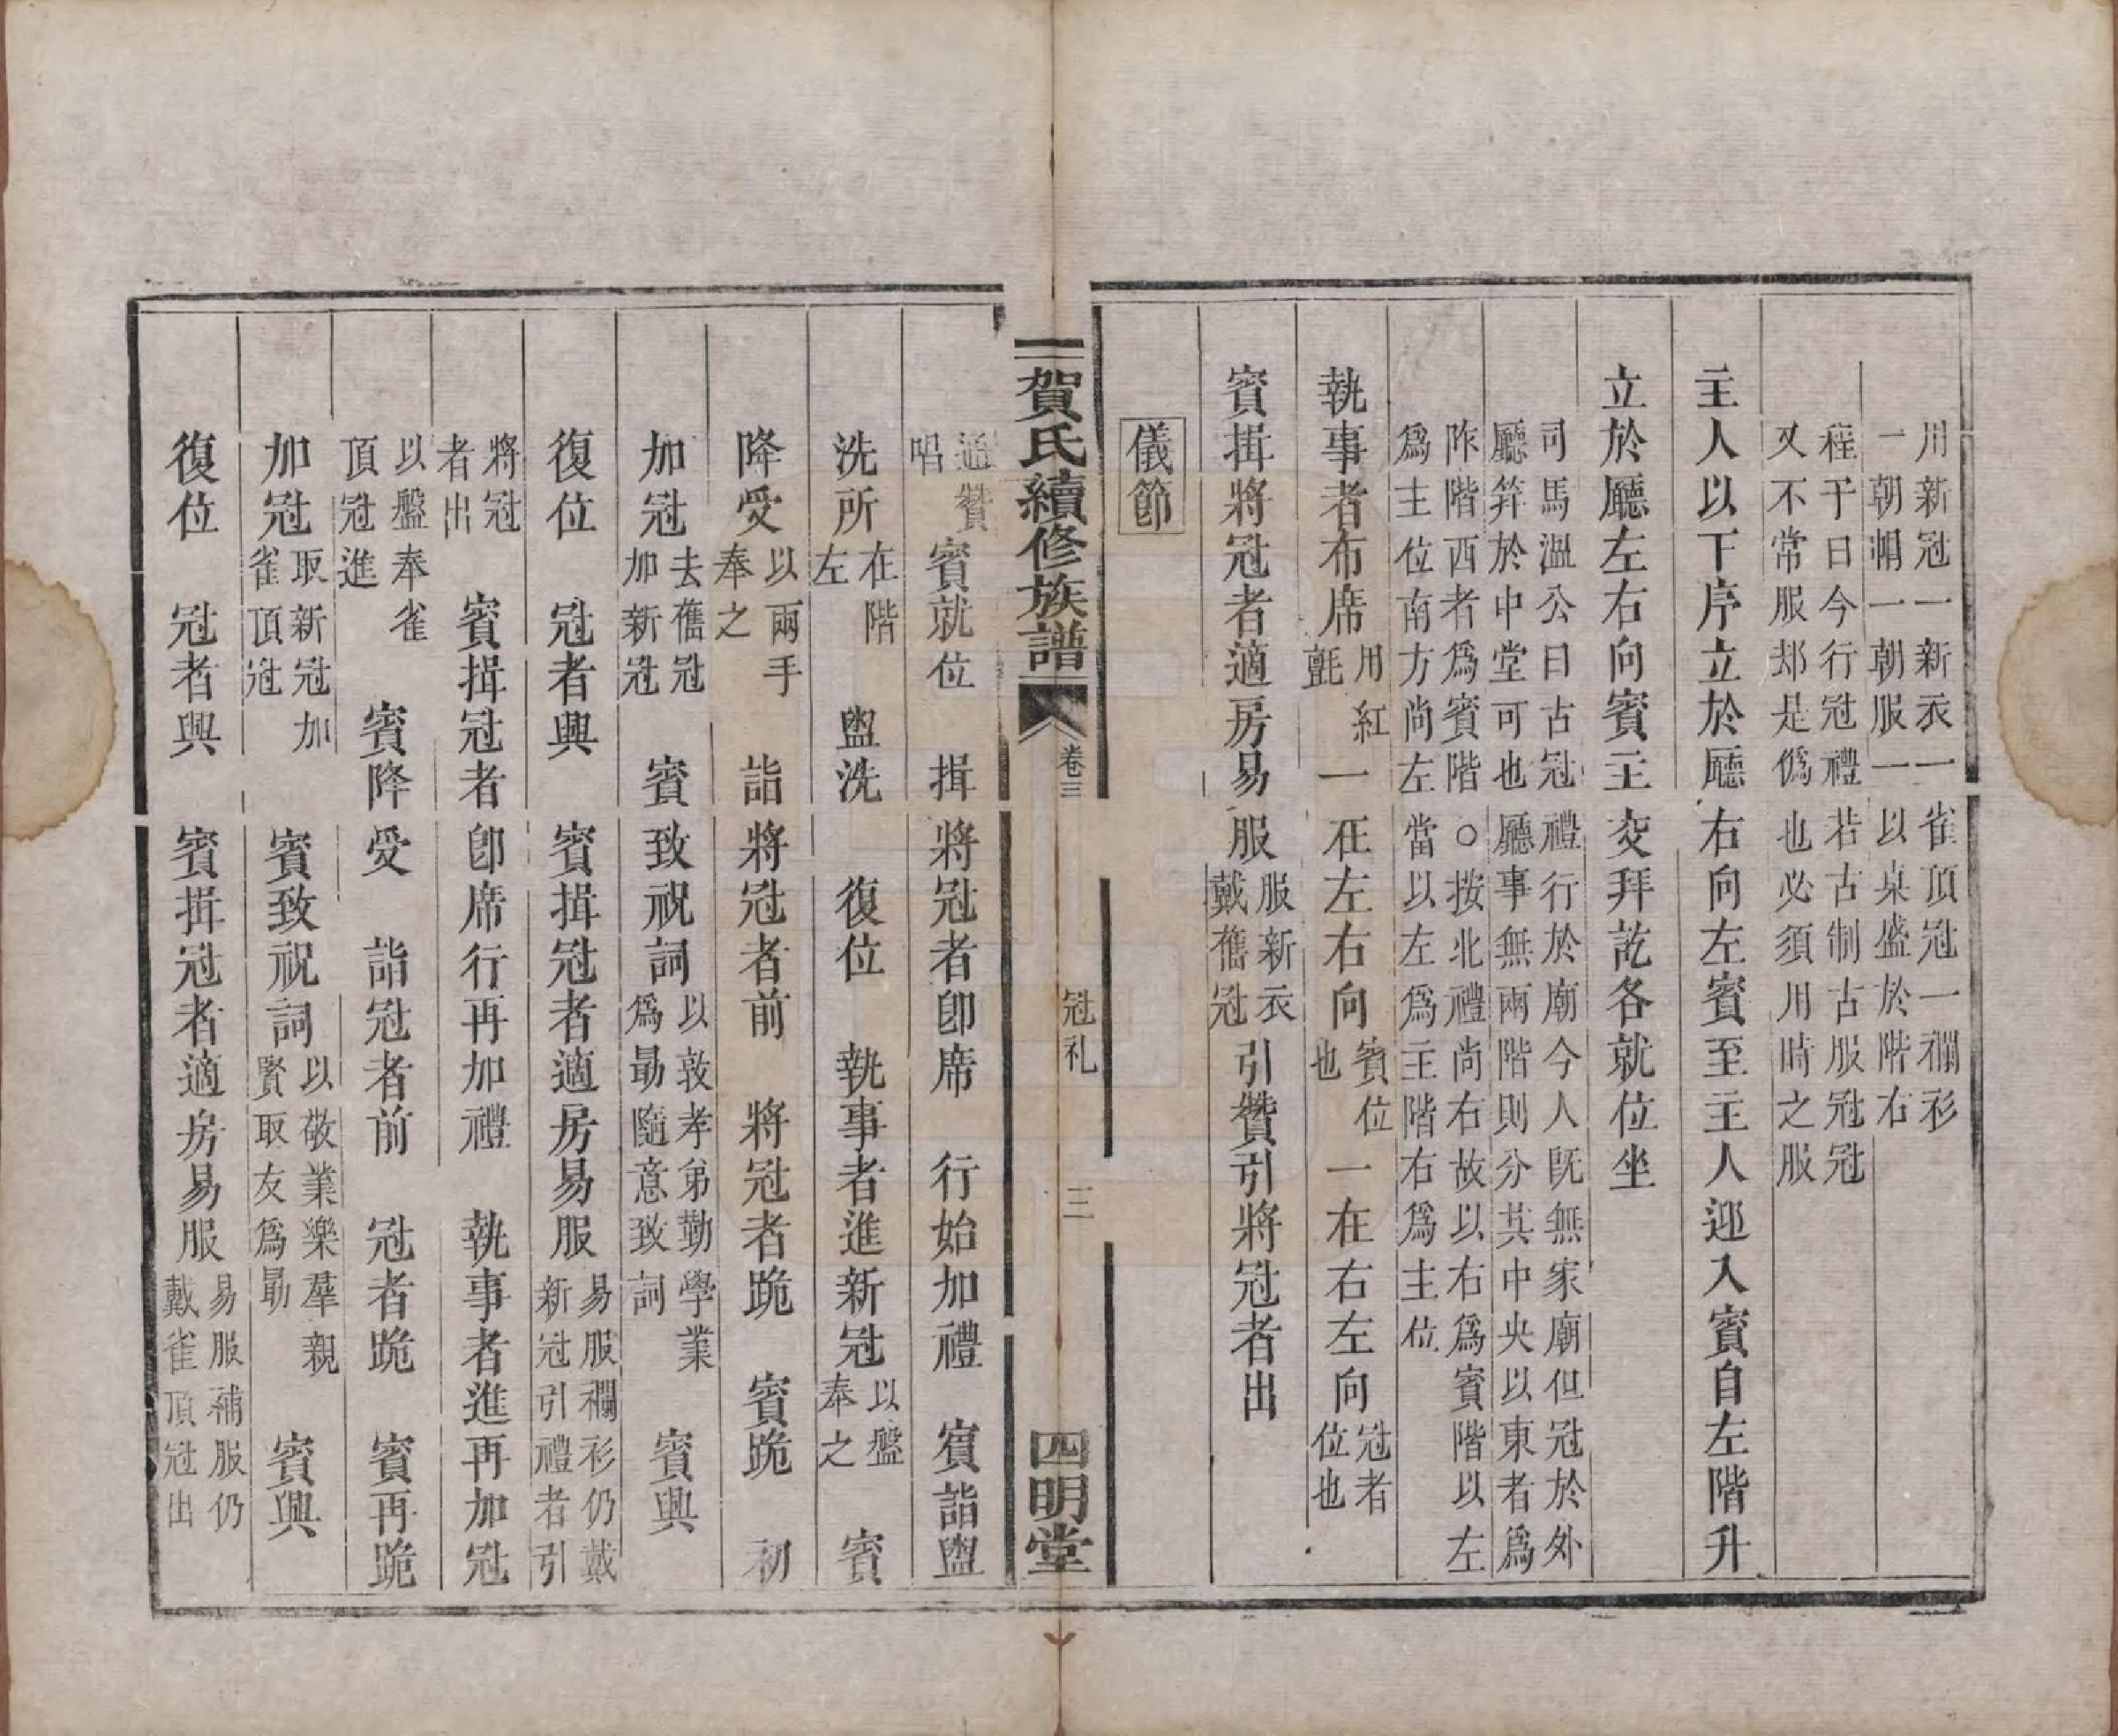 用新冠一新衣一雀頂冠一襴衫
一朝帽一朝服一以桌盛於階右
程子曰今行冠禮若古制古服冠冠
又不常服却是僞也必須用時之服
主人以下序立於廳右向左賓至主人迎入賓自左階升
立於廳左右向賓主交拜訖各就位坐
司馬溫公曰古冠禮行於廟今人旣無家廟但冠於外
廳筓於中堂可也廳事無兩階則分其中央以東者爲
阼階西者爲賓階○按北禮尚右故以右爲賓階以左
爲主位南方尚左當以左爲主階右爲主位
執事者布席用紅氈一在左右向賓位也一在右左向冠者位也
賓揖將冠者適房易服服新衣戴舊冠引贊引將冠者出
儀節
賀氏續修族譜
卷三
冠礼
三
四明堂
通贊唱賓就位　揖將冠者卽席　行始加禮　賓詣盥
洗所在階左　盥洗　復位　執事者進新冠以盤奉之　賓
降受以兩手奉之　詣將冠者前　將冠者跪　賓跪　初
加冠去舊冠加新冠　賓致祝詞以敦孝弟勤學業爲勗隨意致詞　賓興
復位　冠者興　賓揖冠者適房易服易服襴衫仍戴新冠引禮者引
將冠者出　賓揖冠者卽席行再加禮　執事者進再加冠
以盤奉雀頂冠進　賓降受　詣冠者前　冠者跪　賓再跪
加冠取新冠加雀頂冠　賓致祝詞以敬業樂羣親賢取友爲勗　賓興
復位　冠者興　賓揖冠者適房易服易服補服仍戴雀頂冠出